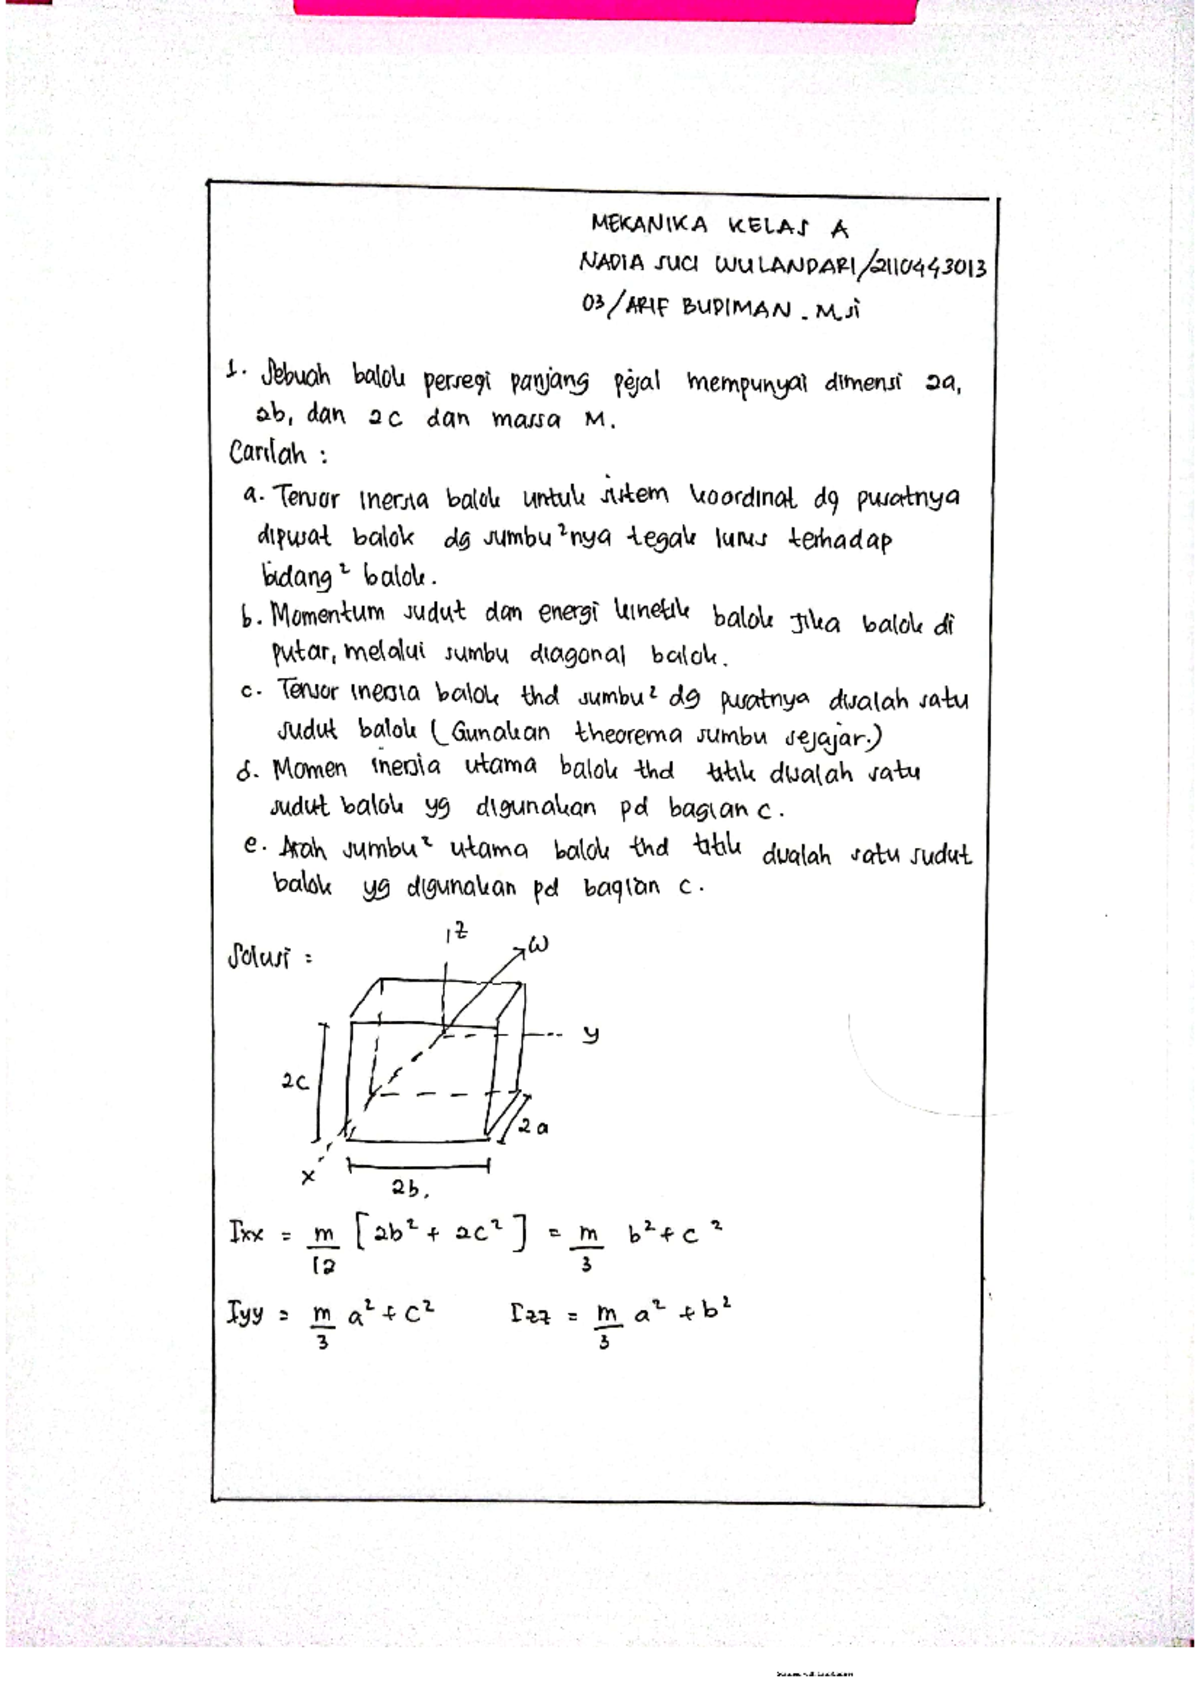 MEKANIKA KELAS A
NADIA SUCI WULANDARI/2110443013
03/ARIF BUDIMAN. M.si
1. Sebuah balok persegi panjang pejal mempunyai dimensi 2a,
2b, dan 2c dan massa M.
Carilah :
a. Tensor inersia balok untuk sistem koordinat dg pusatnya
dipusat balok dg sumbu²nya tegak lurus terhadap
bidang² balok.
b. Momentum sudut dan energi kinetik balok jika balok di
putar, melalui sumbu diagonal balok.
c. Tensor inersia balok thd sumbu² dg pusatnya disalah satu
sudut balok (Gunakan theorema sumbu sejajar.)
d. Momen inersia utama balok thd titik disalah satu
sudut balok yg digunakan pd bagian c.
e. Arah sumbu² utama balok thd titik dualah satu sudut
balok yg digunakan pd bagian c.
Solusi :
z
ω
y
2c
2a
x
2b.
Ixx = m/12 [2b² + 2c²] = m/3 b² + c²
Iyy = m/3 a² + c² Izz = m/3 a² + b²